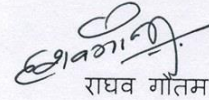 राघव गौतम